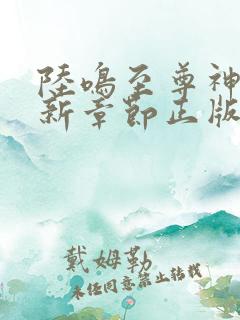 陸鳴至尊神
新章節正版
戴姆勒
未经同意禁止转载